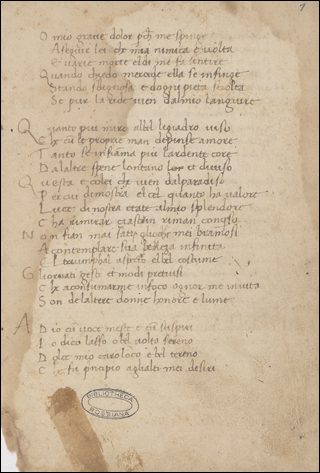 O mio grave dolor pch me spinge
A seguir lei che mia nimica e uolta
E uarie morte el di me fa sentire
Quando chiedo mercede ella se infinge
Stando sdegnosa e dogni pieta sciolta
Se pur la ride uien dal mio languire
Quanto piu miro al bel legiadro uiso
Che cū le proprie man depinse amore
Tanto se infiama piu lardente core
Da laltre spene lontano e diuiso
Questa e colei che uien dal paradiso
Per cui dimostra el ciel quanto ha ualore
Luce di nostra etate almo splendore
Cha rimirar ciaschun riman conquiso
Non fian mai satij gliochi mei bramosi
A contemplare sua belleza infinita
El triumphal aspecto el bel costume
Gliornati gesti et modi pretiosi
Che a consumarme in foco ognor me inuita
Son de laltre donne honore e lume
A Dio cū uoce meste e cū suspiri
Io dico lasso o bel uolto sereno
Dolce mio caro loco e bel tereno
Che fu principio agli alti mei desiri
BIBLIOTHECA
ROSSIANA